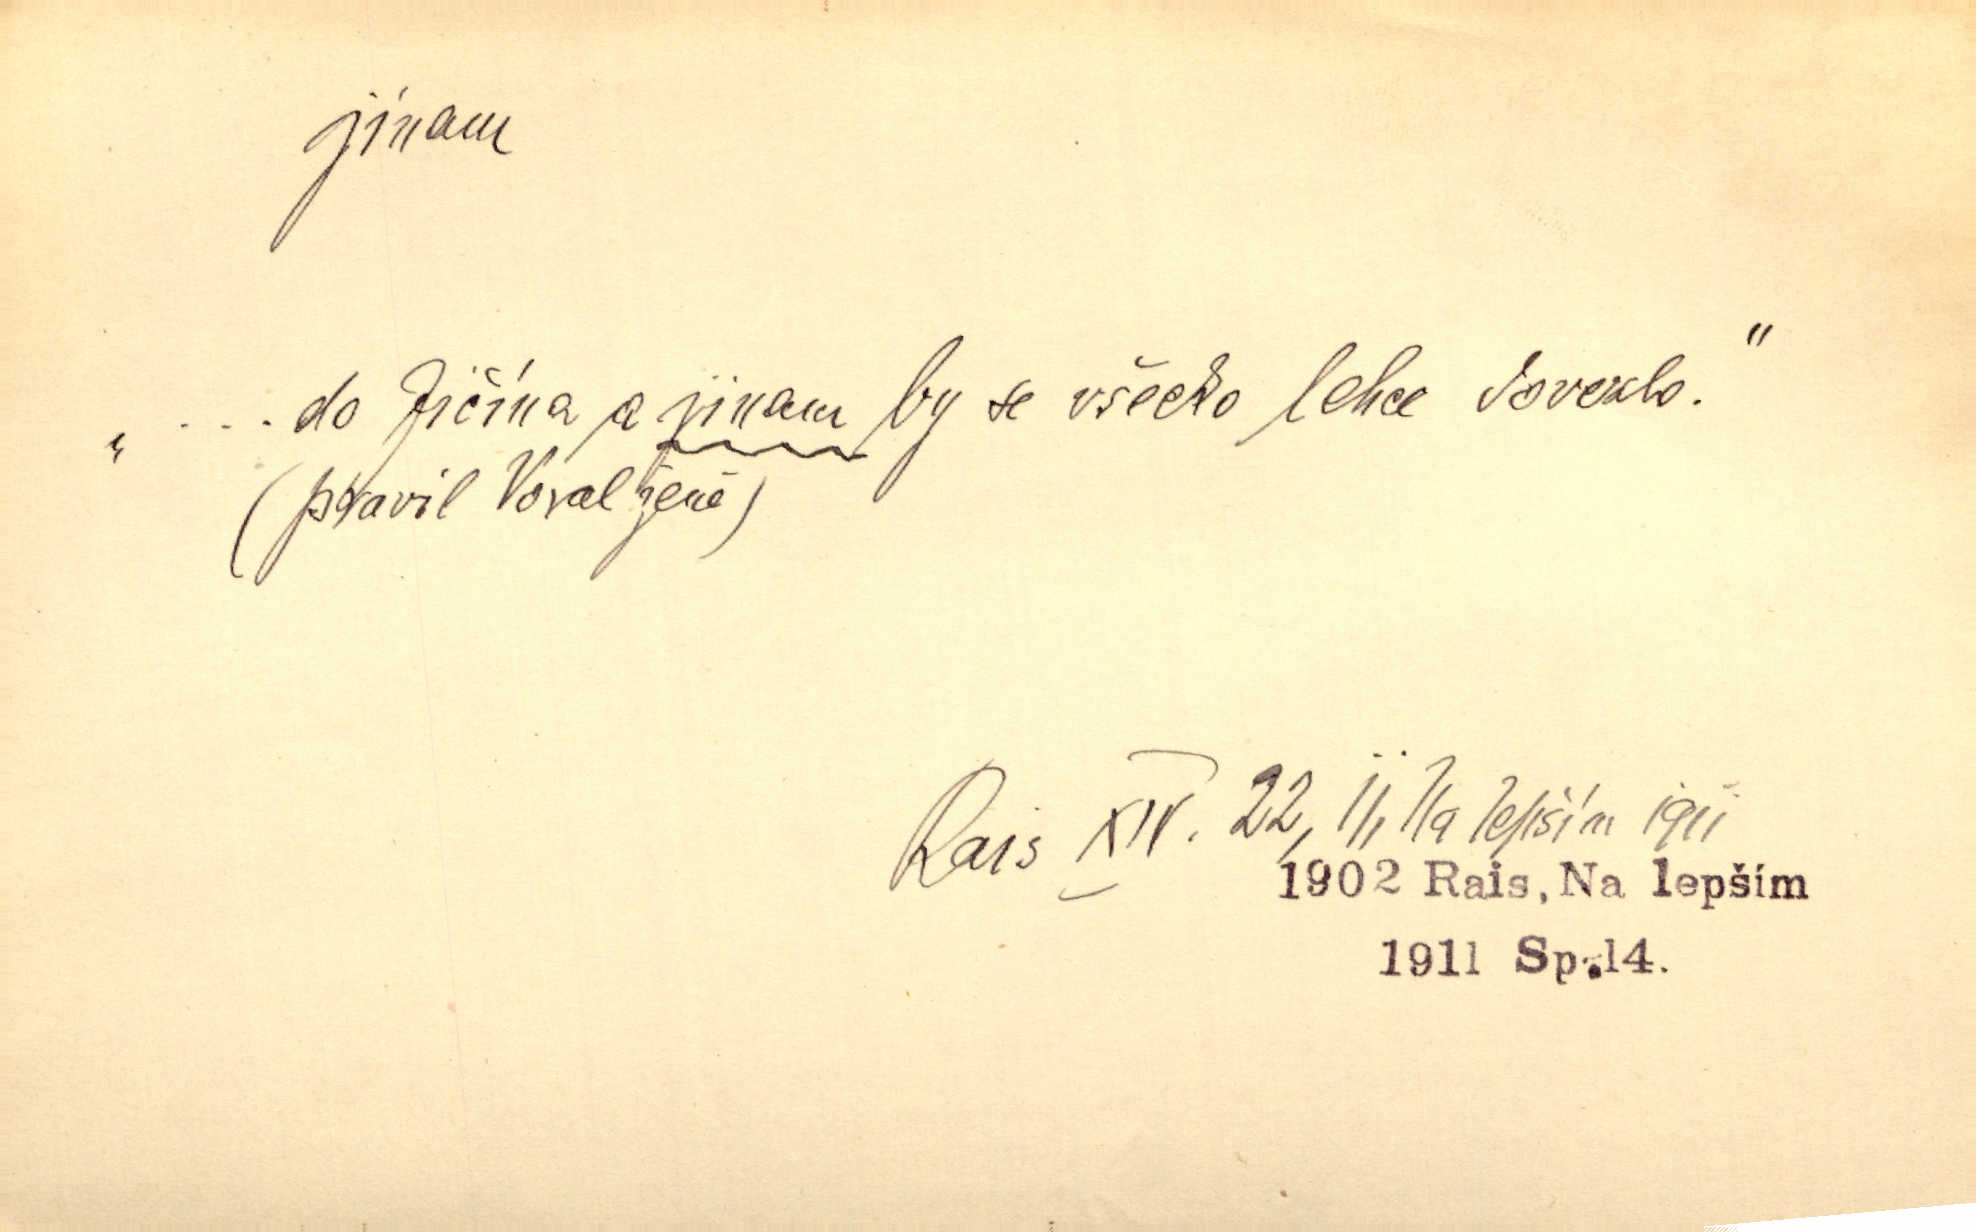 jinam
„ . . . . do Jičína a jinam by se všecko lehce dovezlo."
(pravil Voral ženě)
Rais XIV. 22, Na lepším 1911
1902 Rais, Na lepším
1911 Sp. 14.